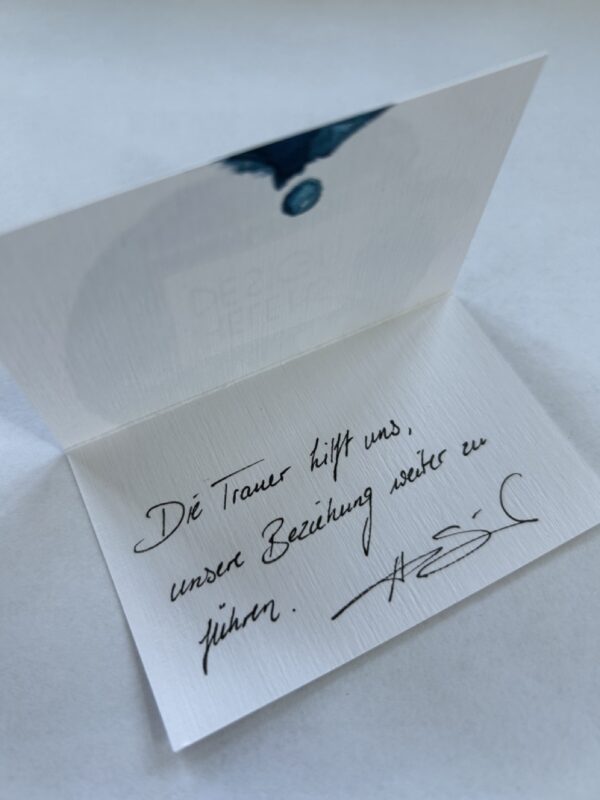 DESIGN
Die Trauer hilft uns,
unsere Beziehung weiter zu
führen.